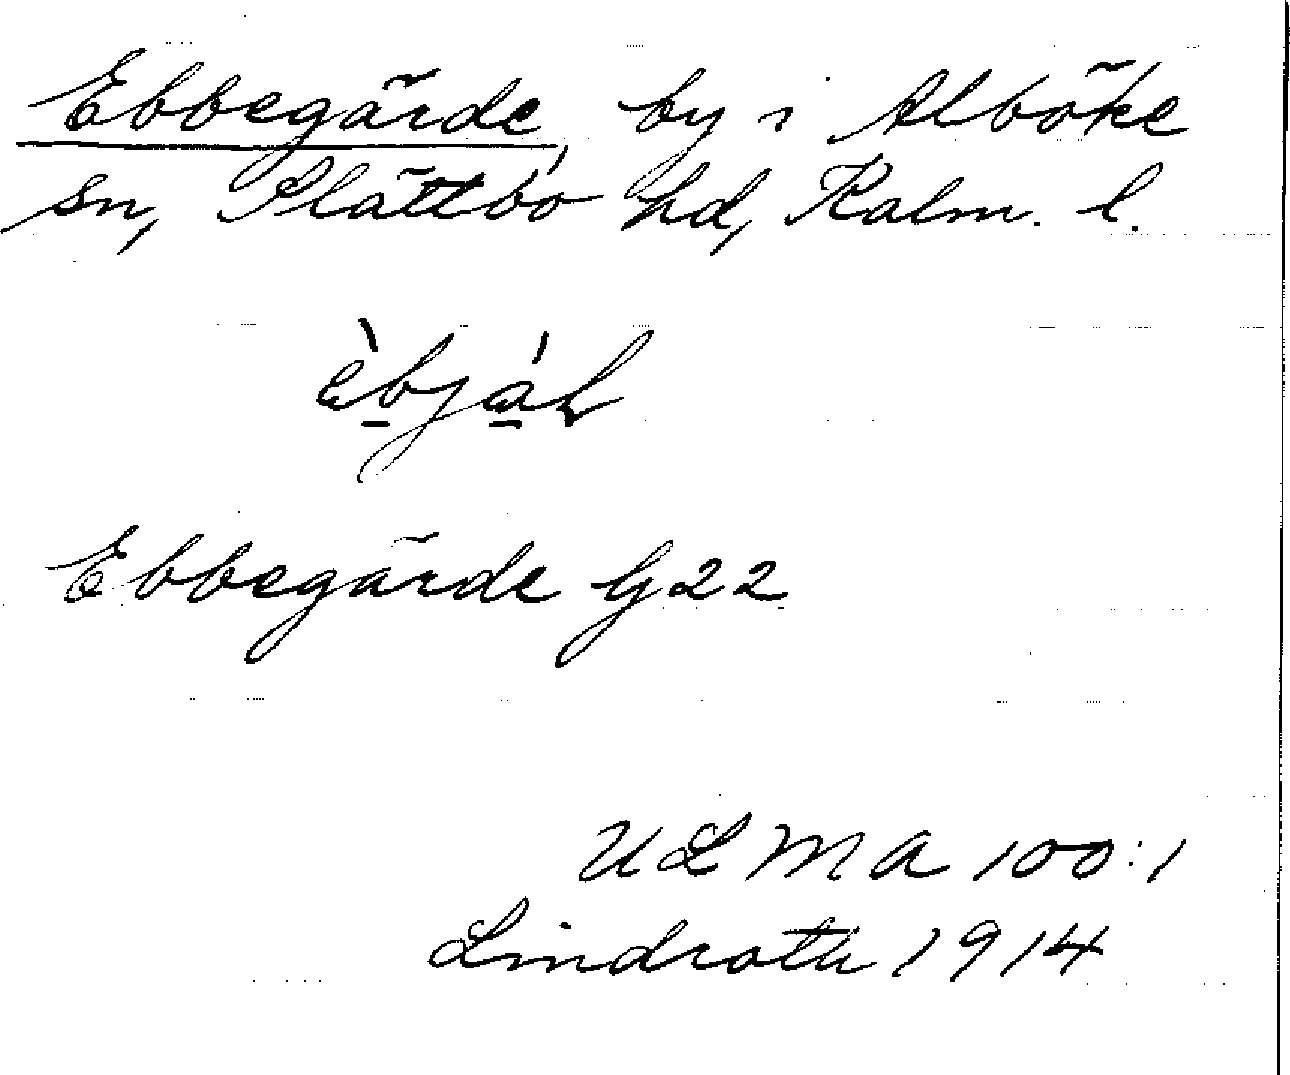 Ebbegärde by i Alböke
sn, Slättbo hd, Kalm. l.
Ebbegärde G22
ULMA 100:1
Lindroth 1914